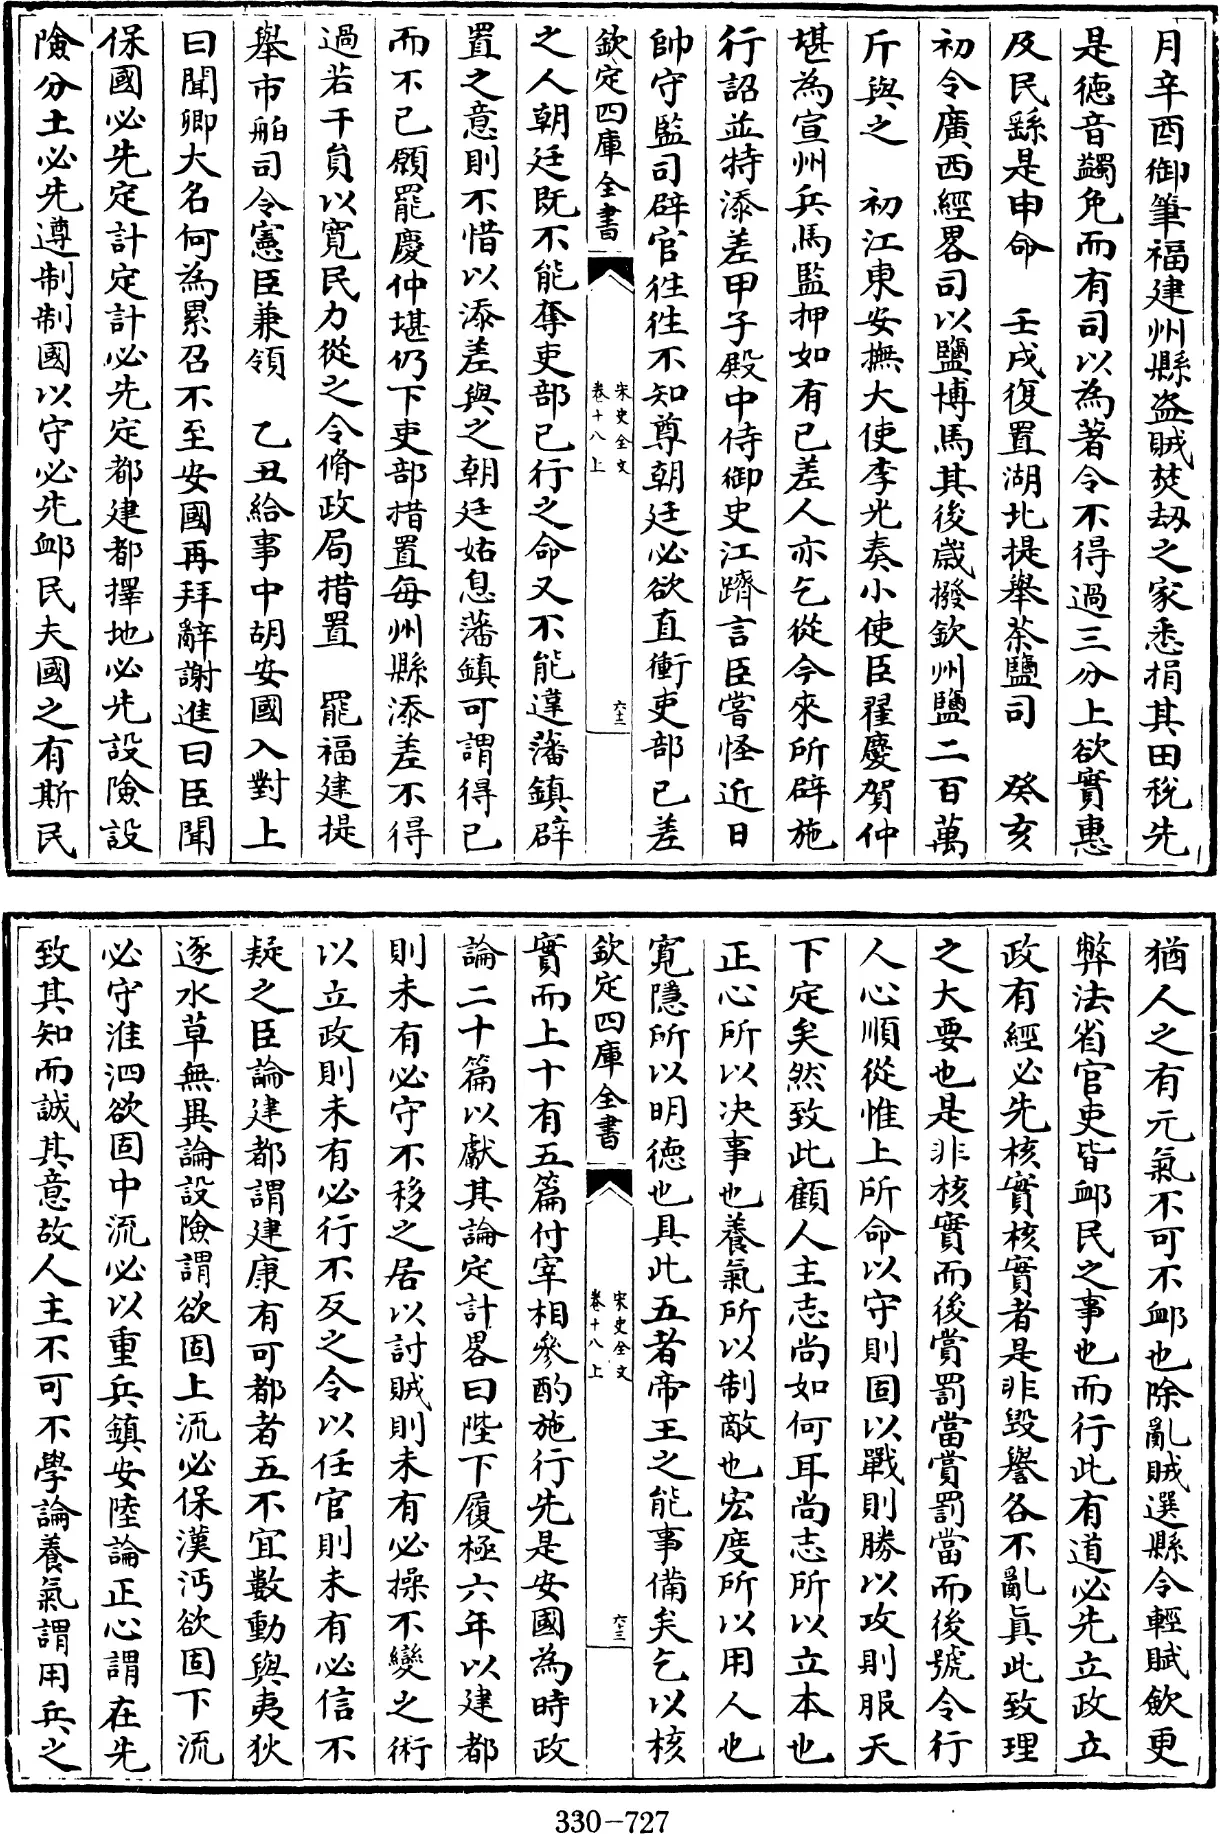 月辛酉御筆福建州縣盗賊焚刼之家悉捐其田稅先
是徳音蠲免而有司以為著令不得過三分上欲實惠
及民繇是申命　壬戌復置湖北提舉茶鹽司　癸亥
初令廣西經畧司以鹽博馬其後歳撥欽州鹽二百萬
斤與之　初江東安撫大使李光奏小使臣翟慶賀仲
堪為宣州兵馬監押如有已差人亦乞從今來所辟施
行詔並特添差甲子殿中侍御史江躋言臣嘗怪近日
帥守監司辟官徃徃不知尊朝廷必欲直衝吏部已差
欽定四庫全書　宋史全文卷十八上　六十二
之人朝廷既不能奪吏部已行之命又不能違藩鎮辟
置之意則不惜以添差與之朝廷姑息藩鎮可謂得已
而不已願罷慶仲堪仍下吏部措置每州縣添差不得
過若干員以寛民力從之令脩政局措置　罷福建提
舉市舶司令憲臣兼領　乙丑給事中胡安國入對上
曰聞卿大名何為累召不至安國再拜辭謝進曰臣聞
保國必先定計定計必先定都建都擇地必先設險設
險分土必先遵制制國以守必先䘏民夫國之有斯民
猶人之有元氣不可不䘏也除亂賊選縣令輕賦歛更
弊法省官吏皆䘏民之事也而行此有道必先立政立
政有經必先核實核實者是非毀譽各不亂真此致理
之大要也是非核實而後賞罰當賞罰當而後號令行
人心順從惟上所命以守則固以戰則勝以攻則服天
下定矣然致此顧人主志尚如何耳尚志所以立本也
正心所以决事也養氣所以制敵也宏度所以用人也
寛隱所以明德也具此五者帝王之能事備矣乞以核
欽定四庫全書　宋史全文卷十八上　六十三
實而上十有五篇付宰相叅酌施行先是安國為時政
論二十篇以獻其論定計畧曰陛下履極六年以建都
則未有必守不移之居以討賊則未有必操不變之術
以立政則未有必行不反之令以任官則未有必信不
疑之臣論建都謂建康有可都者五不宜數動與夷狄
逐水草無異論設險謂欲固上流必保漢沔欲固下流
必守淮泗欲固中流必以重兵鎮安陸論正心謂在先
致其知而誠其意故人主不可不學論養氣謂用兵之
330-727